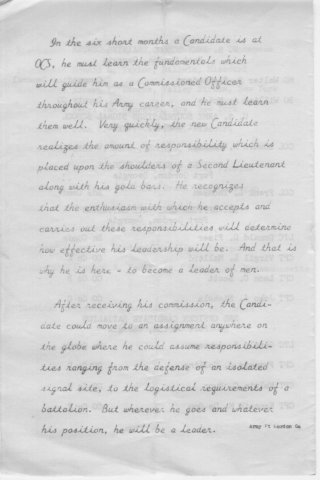 In the six short months a Candidate is at
OCS, he must learn the fundamentals which
will guide him as a Commissioned Officer
throughout his Army career, and he must learn
them well. Very quickly, the new Candidate
realizes the amount of responsibility which is
placed upon the shoulders of a Second Lieutenant
along with his gold bars. He recognizes
that the enthusiasm with which he accepts and
carries out these responsibilities will determine
how effective his leadership will be. And that is
why he is here - to become a leader of men.
After receiving his commission, the Candi-
date could move to an assignment anywhere on
the globe where he could assume responsibili-
ties ranging from the defense of an isolated
signal site, to the logistical requirements of a
battalion. But wherever he goes and whatever
his position, he will be a leader.
Army Ft Gordon Ga